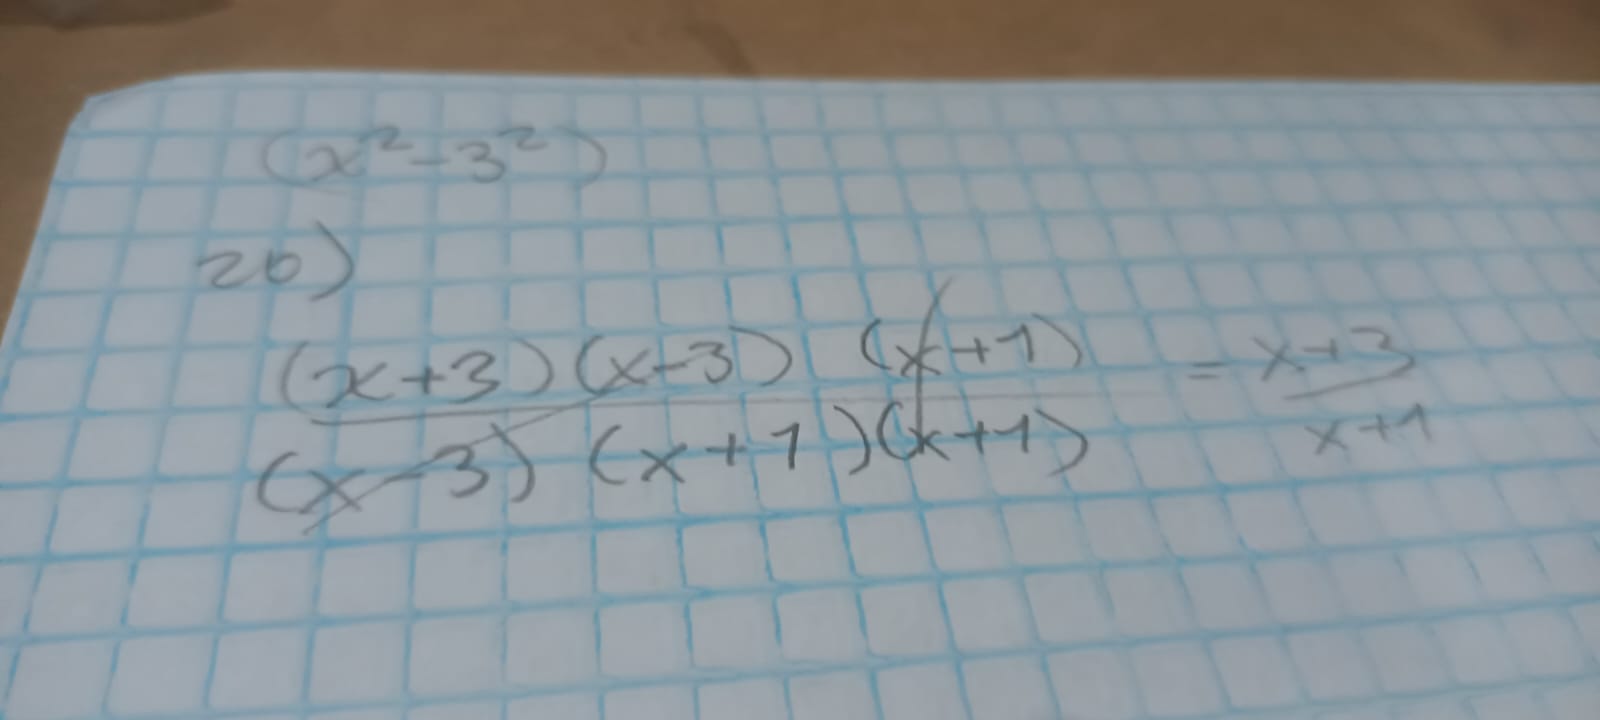 (x²-3²)
20)
(x+3)(x-3) (x+1) = x+3
(x-3) (x+1)(x+1) x+1